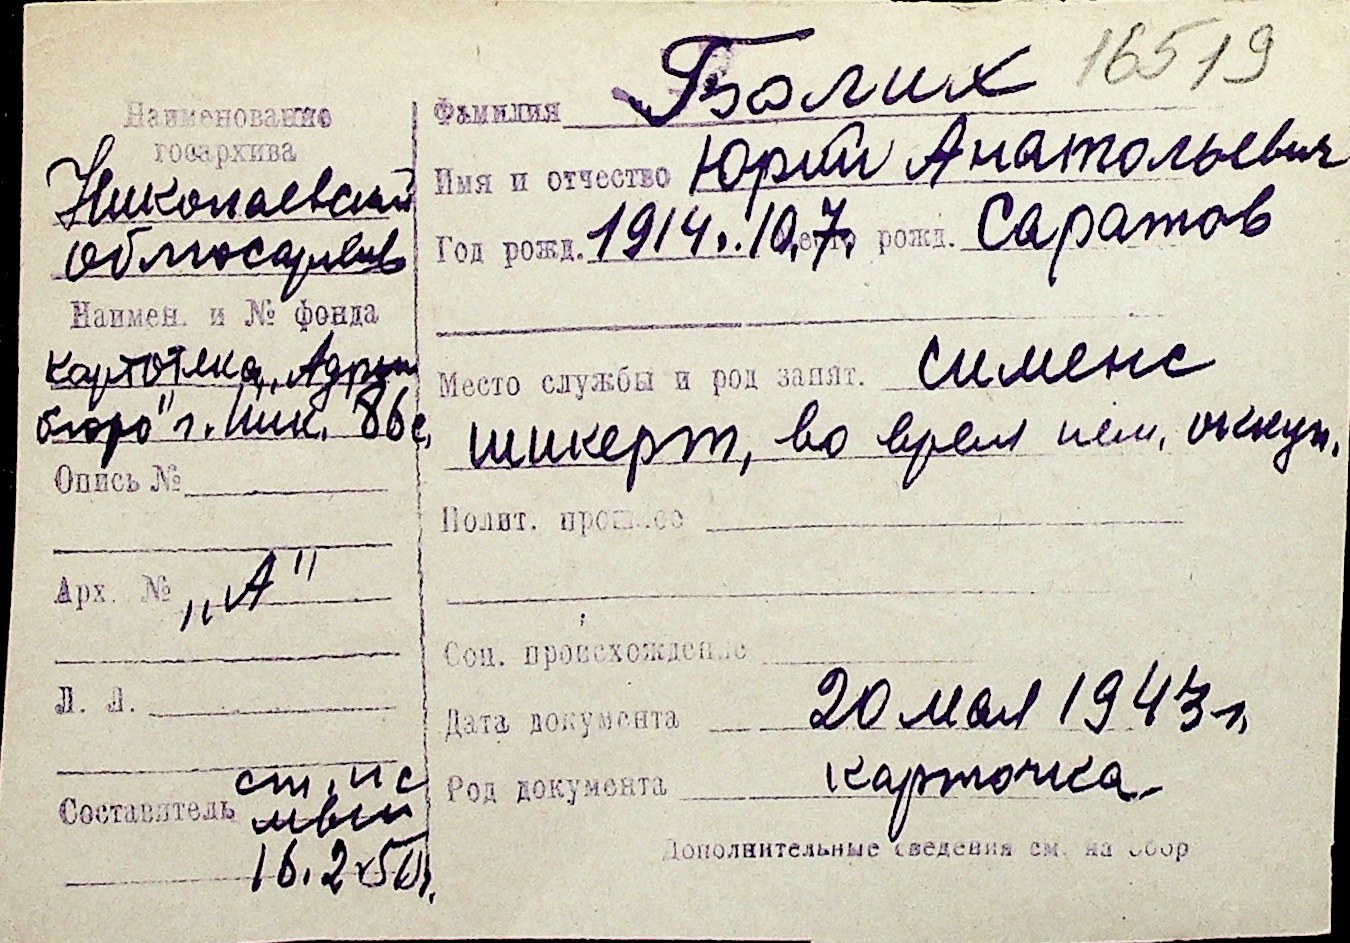 16519
Фамилия Болих
Имя и отчество Юрий Анатольевич
Год рожд. 1914. 10.7. Место рожд. Саратов
Место службы и род занят. Сименс
шикерт, во время нем. оккуп.
Полит. прошлое
Соц. происхождение
Дата документа 20 мая 1943 г.
Род документа карточка
Дополнительные сведения см. на обор
Наименование
госархива
Николаевский
облгосархив
Наимен. и № фонда
картотека „Адрес
бюро" г. Ник. 86 с.
Опись №
Арх. № „А"
Л. Л.
Составитель ст.
16.2.50